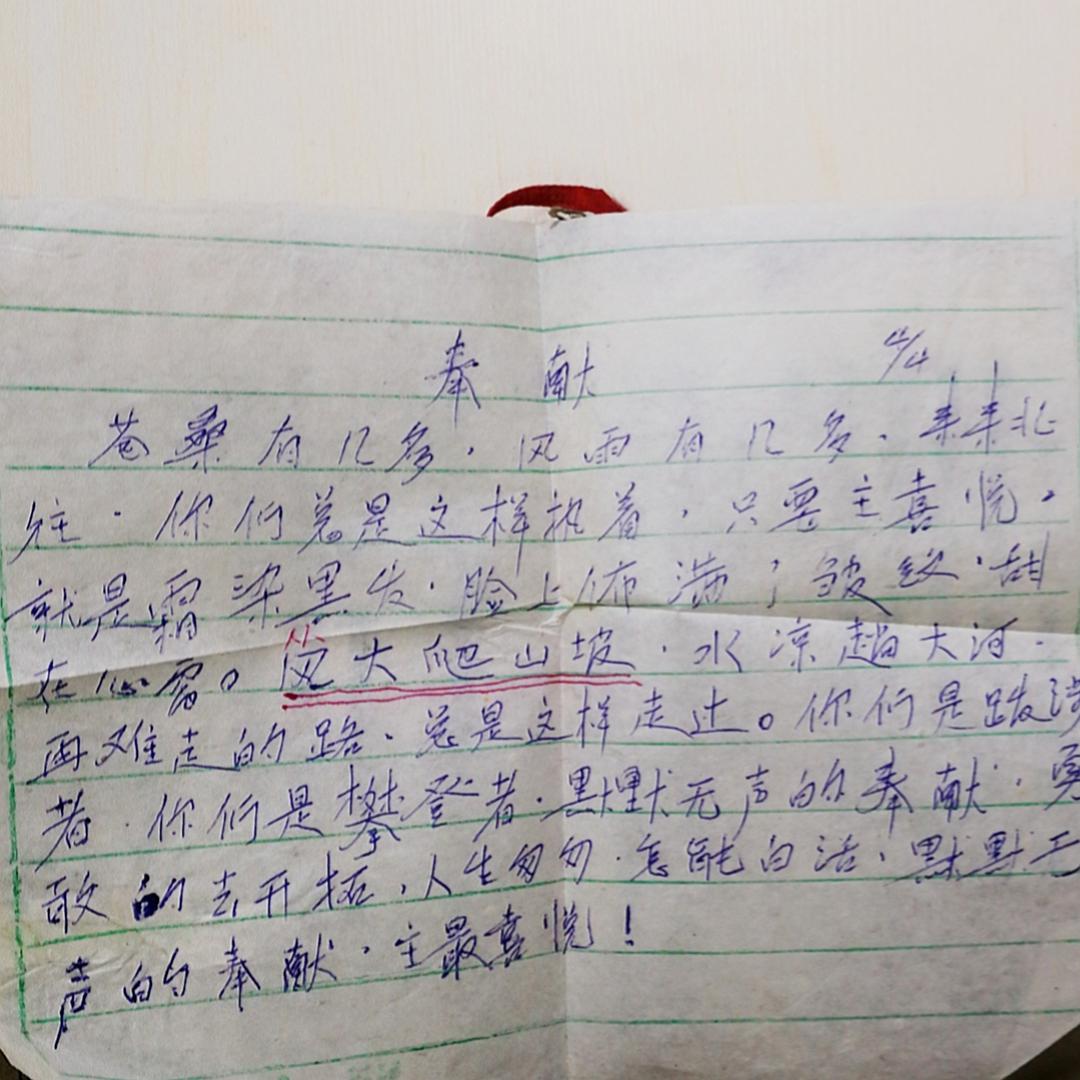 奉献 4/4
苍桑有几多，风雨有几多、来来北
往．你们总是这样执着，只要主喜悦。
就是霜染黑发．脸上佈满了皱纹．甜
在心窝。风大爬山坡．水凉趟大河．
再难走的路、总是这样走过。你们是跋涉
者．你们是攀登者．默默无声的奉献．勇
敢的去开拓，人生匆匆．怎能白活、默默无
声的奉献．主最喜悦！